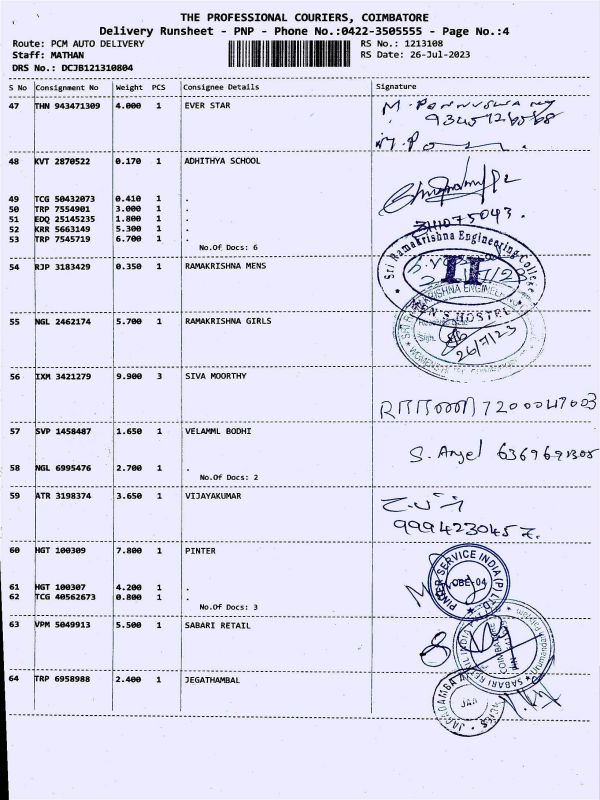 THE PROFESSIONAL COURIERS, COIMBATORE
Delivery Runsheet - PNP - Phone No.:0422-3505555 - Page No.:4
Route: PCM AUTO DELIVERY RS No.: 1213108
Staff: MATHAN RS Date: 26-Jul-2023
DRS No.: DCJB121310804
S No Consignment No Weight PCS Consignee Details Signature
47 THN 943471309 4.000 1 EVER STAR
48 KVT 2870522 0.170 1 ADHITHYA SCHOOL
49 TCG 50432073 0.410 1 .
50 TRP 7554901 3.000 1 .
51 EDQ 28145235 1.800 1 .
52 KRR 5663149 5.300 1 .
53 TRP 7545719 6.700 1 .
No.Of Docs: 6
Sri Ramakrishna Engineering College
II
MEN'S HOSTEL
54 RJP 3183429 0.350 1 RAMAKRISHNA MENS
55 NGL 2462174 5.700 1 RAMAKRISHNA GIRLS
26/7/23
56 IXM 3421279 9.900 3 SIVA MOORTHY
7200047003
57 SVP 1458487 1.650 1 VELAMML BODHI
58 NGL 6995476 2.700 1 .
No.Of Docs: 2
59 ATR 3198374 3.650 1 VIJAYAKUMAR
60 HGT 100309 7.800 1 PINTER
SERVICE INDIA (P) LTD
CBE-04
61 HGT 100307 4.200 1 .
62 TCG 40562673 0.800 1 .
No.Of Docs: 3
63 VPM 5049913 5.500 1 SABARI RETAIL
SABARI RETAIL INDIA
64 TRP 6958988 2.400 1 JEGATHAMBAL